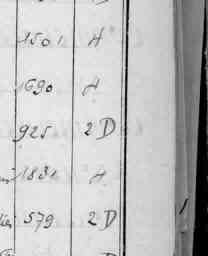 1501 A
1690 A
925 2 D
1831 A
579 2 D